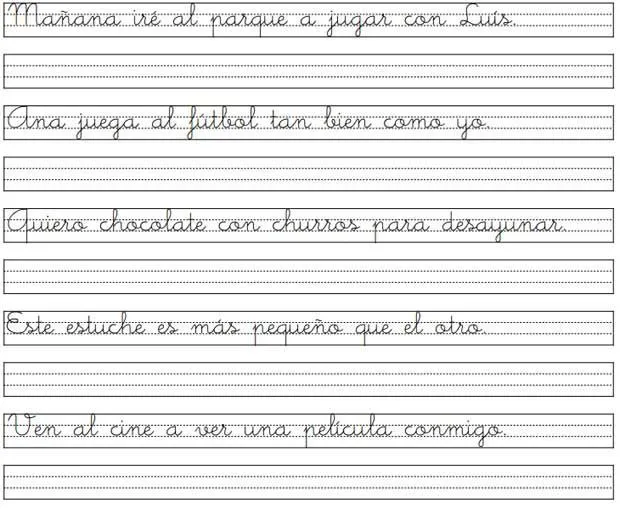 Mañana iré al parque a jugar con Luís.
Ana juega al fútbol tan bien como yo.
Quiero chocolate con churros para desayunar.
Este estuche es más pequeño que el otro.
Ven al cine a ver una película conmigo.